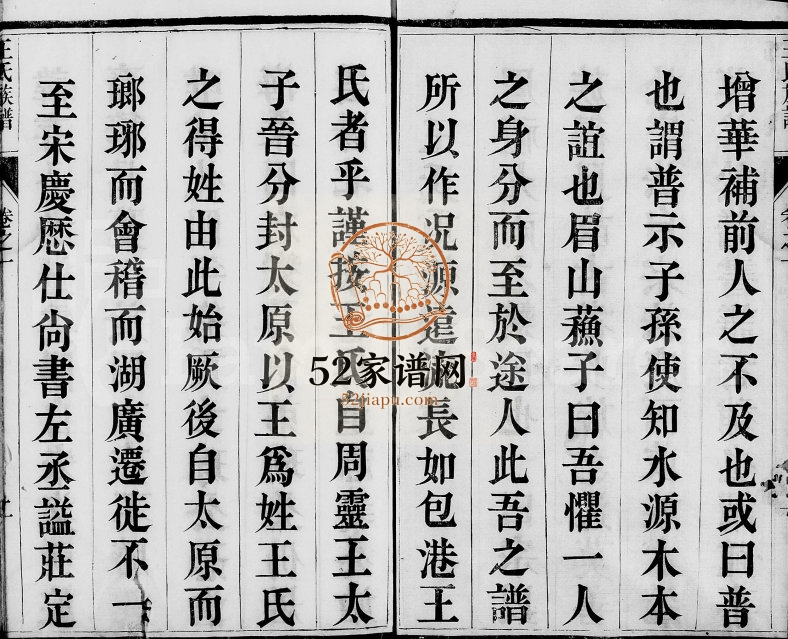 增華補前人之不及也或曰普
也謂普示子孫使知水源木本
之誼也眉山蘓子曰吾懼一人
之身分而至於途人此吾之譜
所以作况源遠流長如包港王
氏者乎謹按王氏自周靈王太
子晉分封太原以王爲姓王氏
之得姓由此始厥後自太原而
瑯琊而會稽而湖廣遷徙不一
至宋慶歷仕尚書左丞謚莊定
王氏族譜
卷之一
52家谱网
52jiapu.com